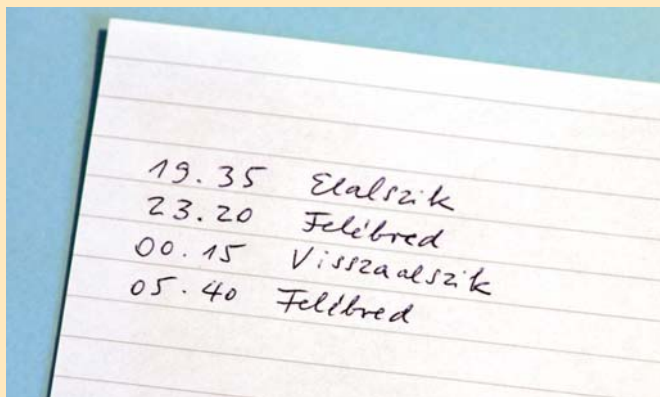 19.35 Elalszik
23.20 Felébred
00.15 Visszaalszik
05.40 Felébred